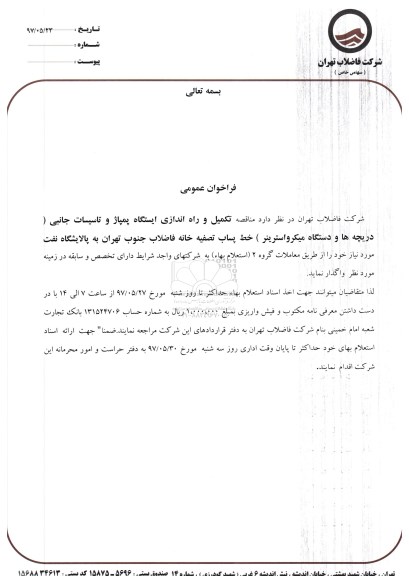 تاریخ : ۹۷/۰۵/۲۳
شماره :
پیوست :
شرکت فاضلاب تهران
( سهامی خاص )
بسمه تعالی
فراخوان عمومی
شرکت فاضلاب تهران در نظر دارد مناقصه تکمیل و راه اندازی ایستگاه پمپاژ و تاسیسات جانبی (
دریچه ها و دستگاه میکرواسترینر ) خط پساب تصفیه خانه فاضلاب جنوب تهران به پالایشگاه نفت
مورد نیاز خود را از طریق معاملات گروه ۲ (استعلام بهاء) به شرکتهای واجد شرایط دارای تخصص و سابقه در زمینه
مورد نظر واگذار نماید.
لذا متقاضیان میتوانند جهت اخذ اسناد استعلام بهاء حداکثر تا روز شنبه مورخ ۹۷/۰۵/۲۷ از ساعت ۷ الی ۱۴ با در
دست داشتن معرفی نامه مکتوب و فیش واریزی بمبلغ ریال به شماره حساب ۱۳۱۵۲۴۷۰۶ بانک تجارت
شعبه امام خمینی بنام شرکت فاضلاب تهران به دفتر قراردادهای این شرکت مراجعه نمایند.ضمنا" جهت ارائه اسناد
استعلام بهای خود حداکثر تا پایان وقت اداری روز سه شنبه مورخ ۹۷/۰۵/۳۰ به دفتر حراست و امور محرمانه این
شرکت اقدام نمایند.
تهران ، خیابان شهید بهشتی ، خیابان اندیشه ، نبش اندیشه ۶ غربی ( شهید گودرزی ) ، شماره ۱۴ صندوق پستی : ۵۶۹۶ ـ ۱۵۸۷۵ کد پستی : ۳۴۶۱۳ ۱۵۶۸۸